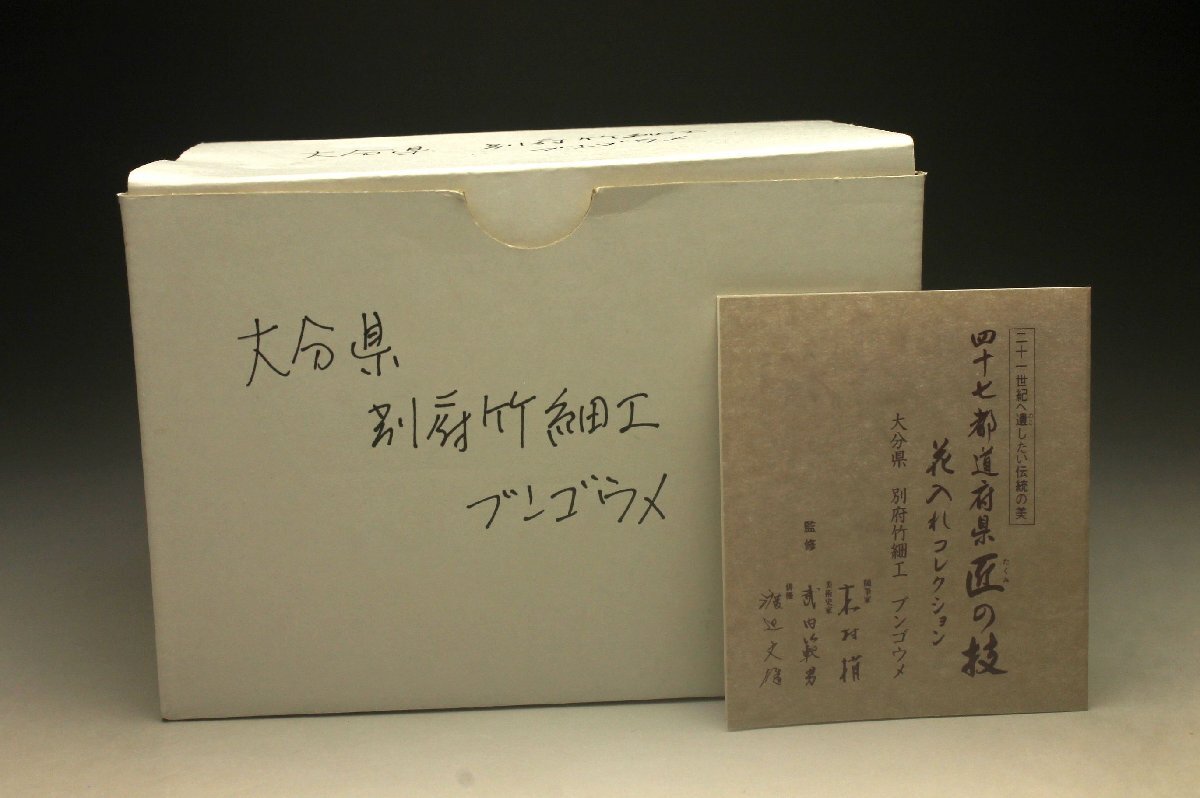 大分県 別府竹細工
ブンゴウメ
大分県
別府竹細工
ブンゴウメ
二十一世紀へ遺したい伝統の美
四十七都道府県匠の技
たくみ
花入れコレクション
大分県 別府竹細工 ブンゴウメ
監修
随筆家
美術史家
武田範男
俳優
渡辺文雄